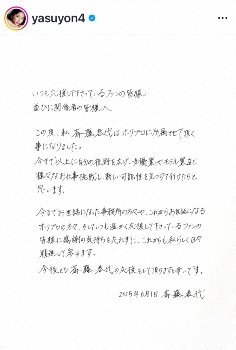 yasuyon4
いつも応援して下さっているファンの皆様
並びに関係者の皆様へ
この度、私 斎藤恭代はホリプロに所属させて頂く
事になりました。
今まで以上に自分の視野を広げ、女優業やモデル業など
様々なお仕事に挑戦し、新しい可能性を見つけて行けたらと
思います。
今までお世話になった事務所の方々や、これからお世話になる
ホリプロの方々、そしていつも温かく応援して下さっているファンの
皆様に感謝の気持ちを忘れずに、これからも私らしく日々
精進して参ります。
今後とも斎藤恭代の応援をして頂けますと幸いです。
2025年6月1日 斎藤恭代